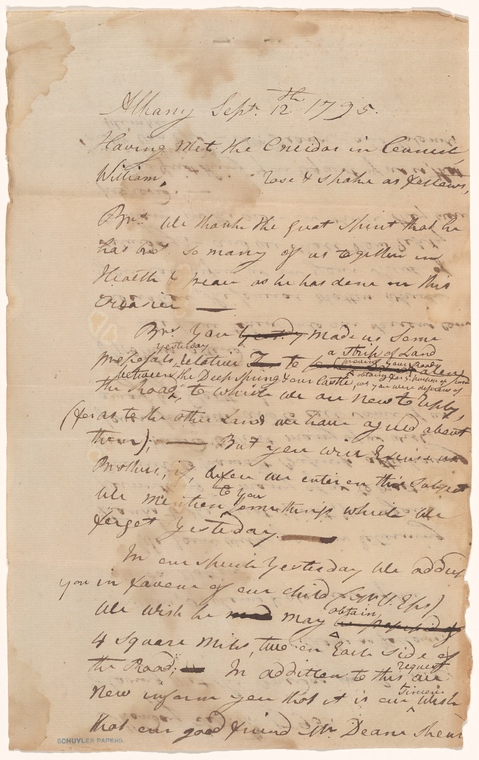 Albany Sept. 12th 1795.
Having Met the Oneidas in Council,
William, rose & spoke as follows,
Brs. We thank the great Spirit that he
has bro't so many of us together in
Health & peace as he has done on this
Occasion —
Brs. You made us some
yesterday a Strip of Land
proposals, relative to
between the Deep Spring & your Castle,
the Road, to which we are now to reply,
(for as to the other Land we have agreed about
them); — But you will
Brothers, if, before we enter on this subject
to you
We mention some things which we
forgot yesterday. —
In our speech Yesterday We addressed
you in favour of our child
obtain
We wish he may
4 square Miles, two on Each side of
the Road. — In addition to this request
now inform you that it is our wish
that our good friend Mr. Deane
SCHUYLER PAPERS